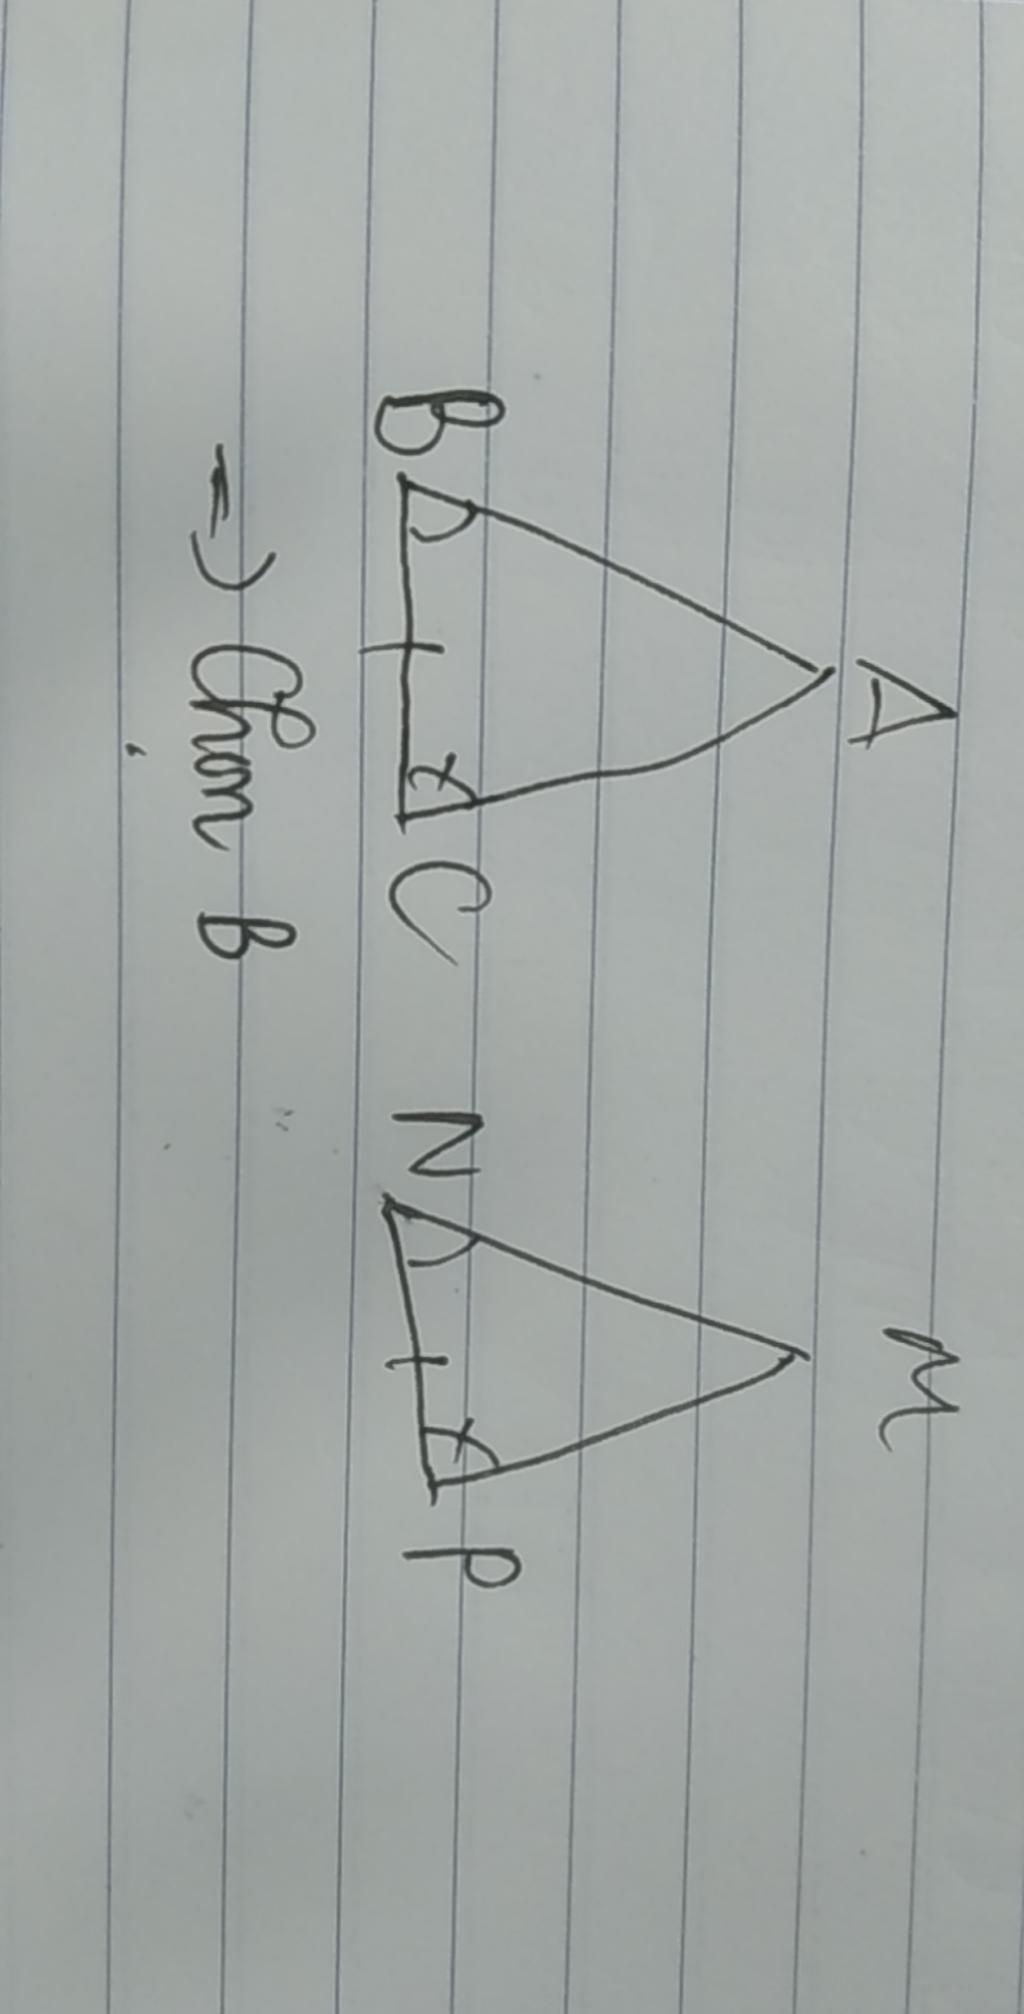 A M
B C N P
=> Chọn B